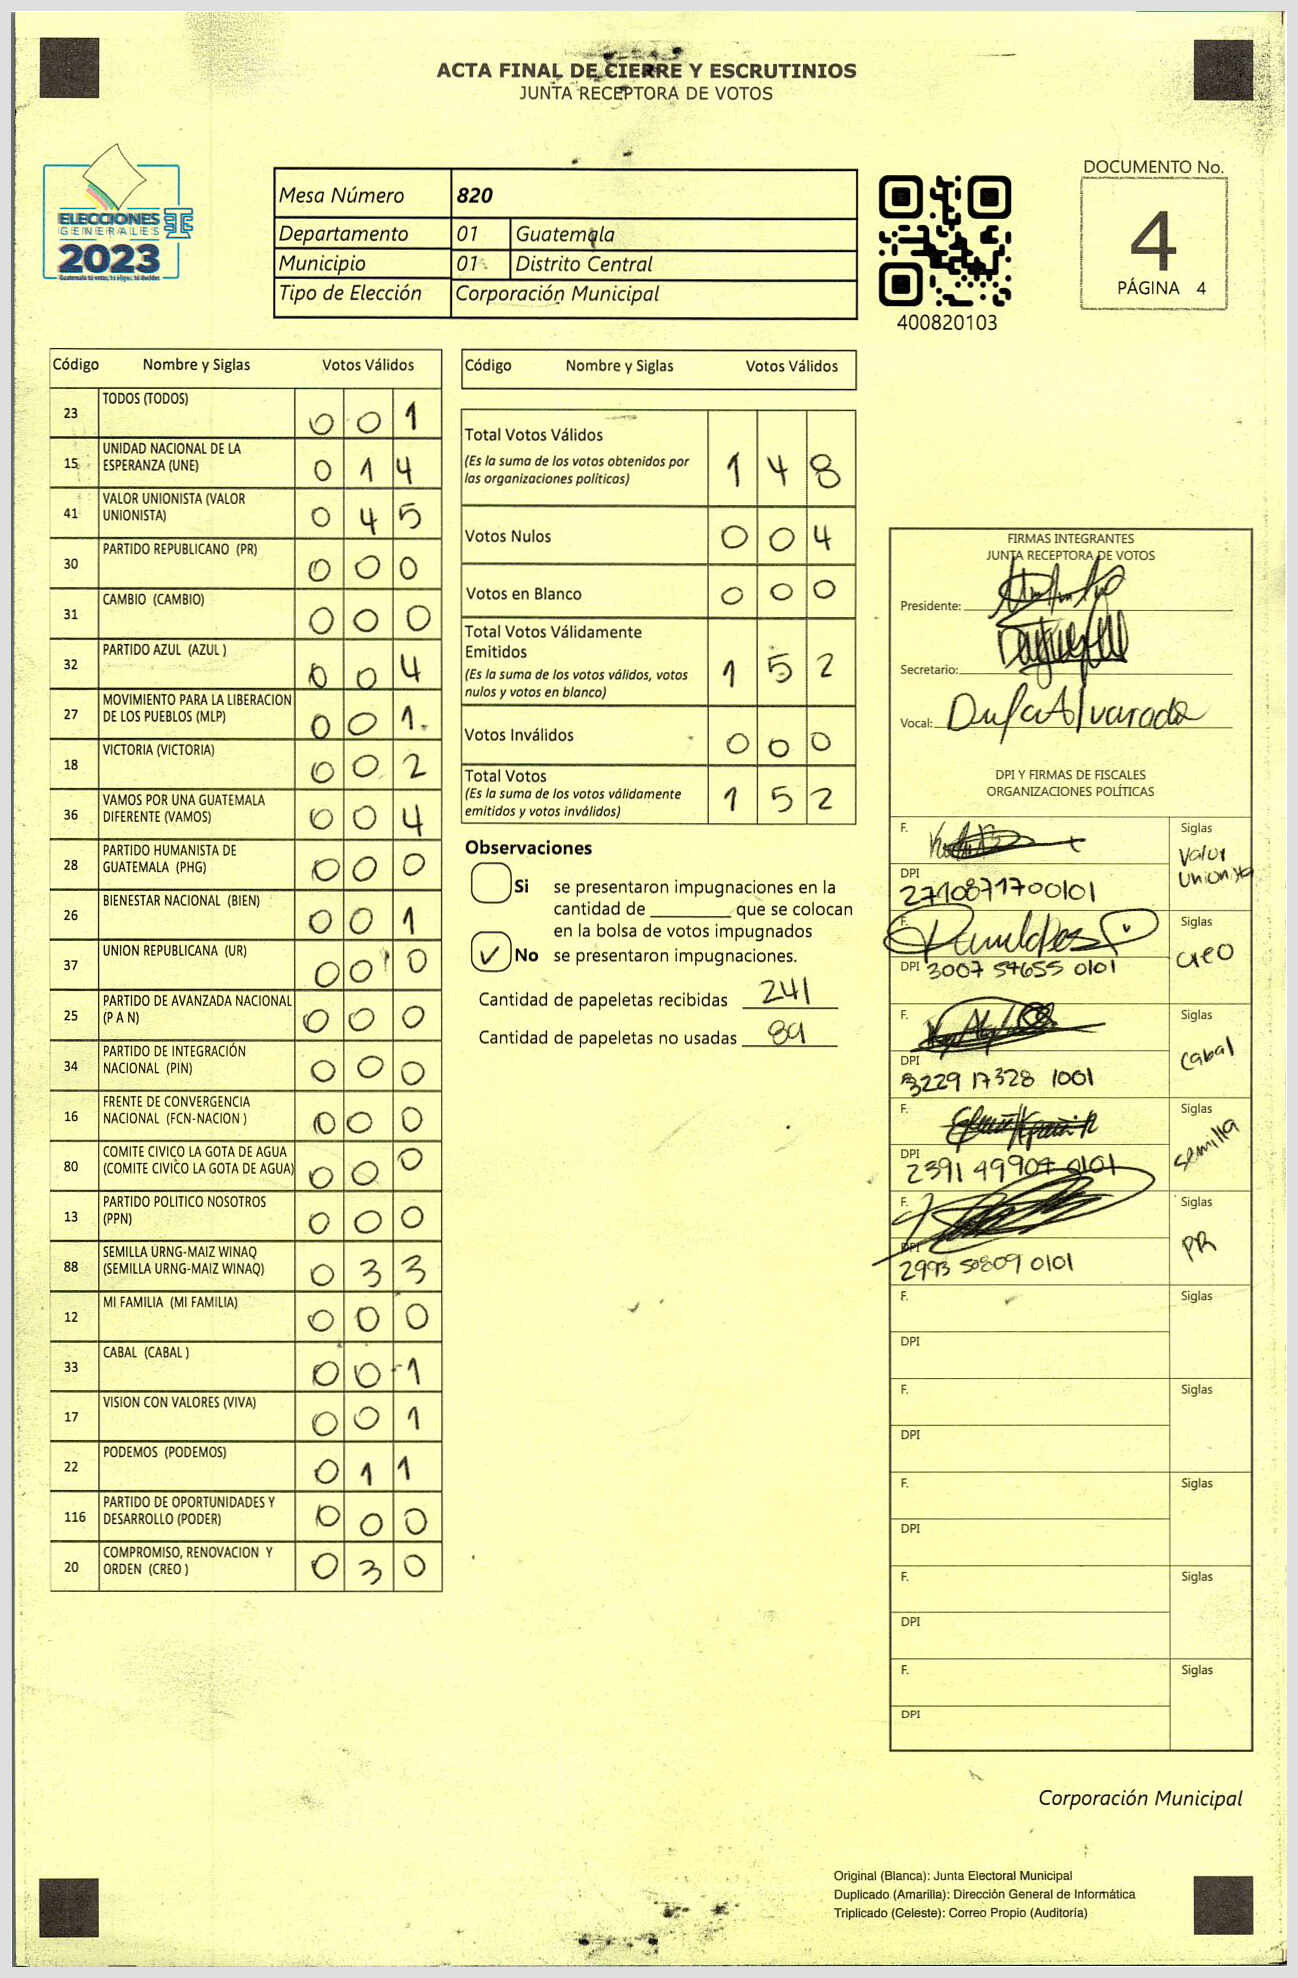 ACTA FINAL DE CIERRE Y ESCRUTINIOS
JUNTA RECEPTORA DE VOTOS
ELECCIONES
GENERALES
2023
Mesa Número 820
Departamento 01 Guatemala
Municipio 01 Distrito Central
Tipo de Elección Corporación Municipal
400820103
DOCUMENTO No.
4
PÁGINA 4
Código Nombre y Siglas Votos Válidos
23 TODOS (TODOS) 0 0 1
15 UNIDAD NACIONAL DE LA
ESPERANZA (UNE) 0 1 4
41 VALOR UNIONISTA (VALOR
UNIONISTA) 0 4 5
30 PARTIDO REPUBLICANO (PR) 0 0 0
31 CAMBIO (CAMBIO) 0 0 0
32 PARTIDO AZUL (AZUL ) 0 0 4
27 MOVIMIENTO PARA LA LIBERACION
DE LOS PUEBLOS (MLP) 0 0 1
18 VICTORIA (VICTORIA) 0 0 2
36 VAMOS POR UNA GUATEMALA
DIFERENTE (VAMOS) 0 0 4
28 PARTIDO HUMANISTA DE
GUATEMALA (PHG) 0 0 0
26 BIENESTAR NACIONAL (BIEN) 0 0 1
37 UNION REPUBLICANA (UR) 0 0 0
25 PARTIDO DE AVANZADA NACIONAL
(P A N) 0 0 0
34 PARTIDO DE INTEGRACIÓN
NACIONAL (PIN) 0 0 0
16 FRENTE DE CONVERGENCIA
NACIONAL (FCN-NACION ) 0 0 0
80 COMITE CIVICO LA GOTA DE AGUA
(COMITE CIVICO LA GOTA DE AGUA) 0 0 0
13 PARTIDO POLITICO NOSOTROS
(PPN) 0 0 0
88 SEMILLA URNG-MAIZ WINAQ
(SEMILLA URNG-MAIZ WINAQ) 0 3 3
12 MI FAMILIA (MI FAMILIA) 0 0 0
33 CABAL (CABAL ) 0 0 1
17 VISION CON VALORES (VIVA) 0 0 1
22 PODEMOS (PODEMOS) 0 1 1
116 PARTIDO DE OPORTUNIDADES Y
DESARROLLO (PODER) 0 0 0
20 COMPROMISO, RENOVACION Y
ORDEN (CREO ) 0 3 0
Código Nombre y Siglas Votos Válidos
Total Votos Válidos
(Es la suma de los votos obtenidos por
las organizaciones políticas) 1 4 8
Votos Nulos 0 0 4
Votos en Blanco 0 0 0
Total Votos Válidamente
Emitidos
(Es la suma de los votos válidos, votos
nulos y votos en blanco) 1 5 2
Votos Inválidos 0 0 0
Total Votos
(Es la suma de los votos válidamente
emitidos y votos inválidos) 1 5 2
Observaciones
Si se presentaron impugnaciones en la
cantidad de ________ que se colocan
en la bolsa de votos impugnados
✓ No se presentaron impugnaciones.
Cantidad de papeletas recibidas 241
Cantidad de papeletas no usadas 89
FIRMAS INTEGRANTES
JUNTA RECEPTORA DE VOTOS
Presidente:
Secretario:
Vocal: Alvarado
DPI Y FIRMAS DE FISCALES
ORGANIZACIONES POLÍTICAS
F. Siglas
Valor
Unionista
DPI
2710871700101
F. Siglas
creo
DPI 3007 54655 0101
F. Siglas
cabal
DPI
3229 17328 1001
F. Siglas
semilla
DPI
2391 49907 0101
F. Siglas
PR
DPI
2993 50809 0101
F. Siglas
DPI
F. Siglas
DPI
F. Siglas
DPI
F. Siglas
DPI
F. Siglas
DPI
Corporación Municipal
Original (Blanca): Junta Electoral Municipal
Duplicado (Amarilla): Dirección General de Informática
Triplicado (Celeste): Correo Propio (Auditoría)